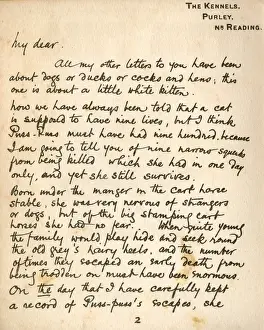 THE KENNELS,
PURLEY,
NR READING.
My dear.
All my other letters to you have been
about dogs or ducks or cocks and hens; this
one is about a little white kitten.
now we have always been told that a cat
is supposed to have nine lives, but I think
Puss-Puss must have had nine hundred, because
I am going to tell you of nine narrow squeaks
from being killed which she had in one day
only, and yet she still survives.
Born under the manger in the cart horse
stable, she was very nervous of strangers
or dogs, but of the big stamping cart
horses she had no fear. When quite young
the family would play hide and seek round
the old grey's hairy heels, and the number
of times they escaped an early death, from
being trodden on must have been enormous.
On the day that I have carefully kept
a record of Puss-puss's escapes, she
2